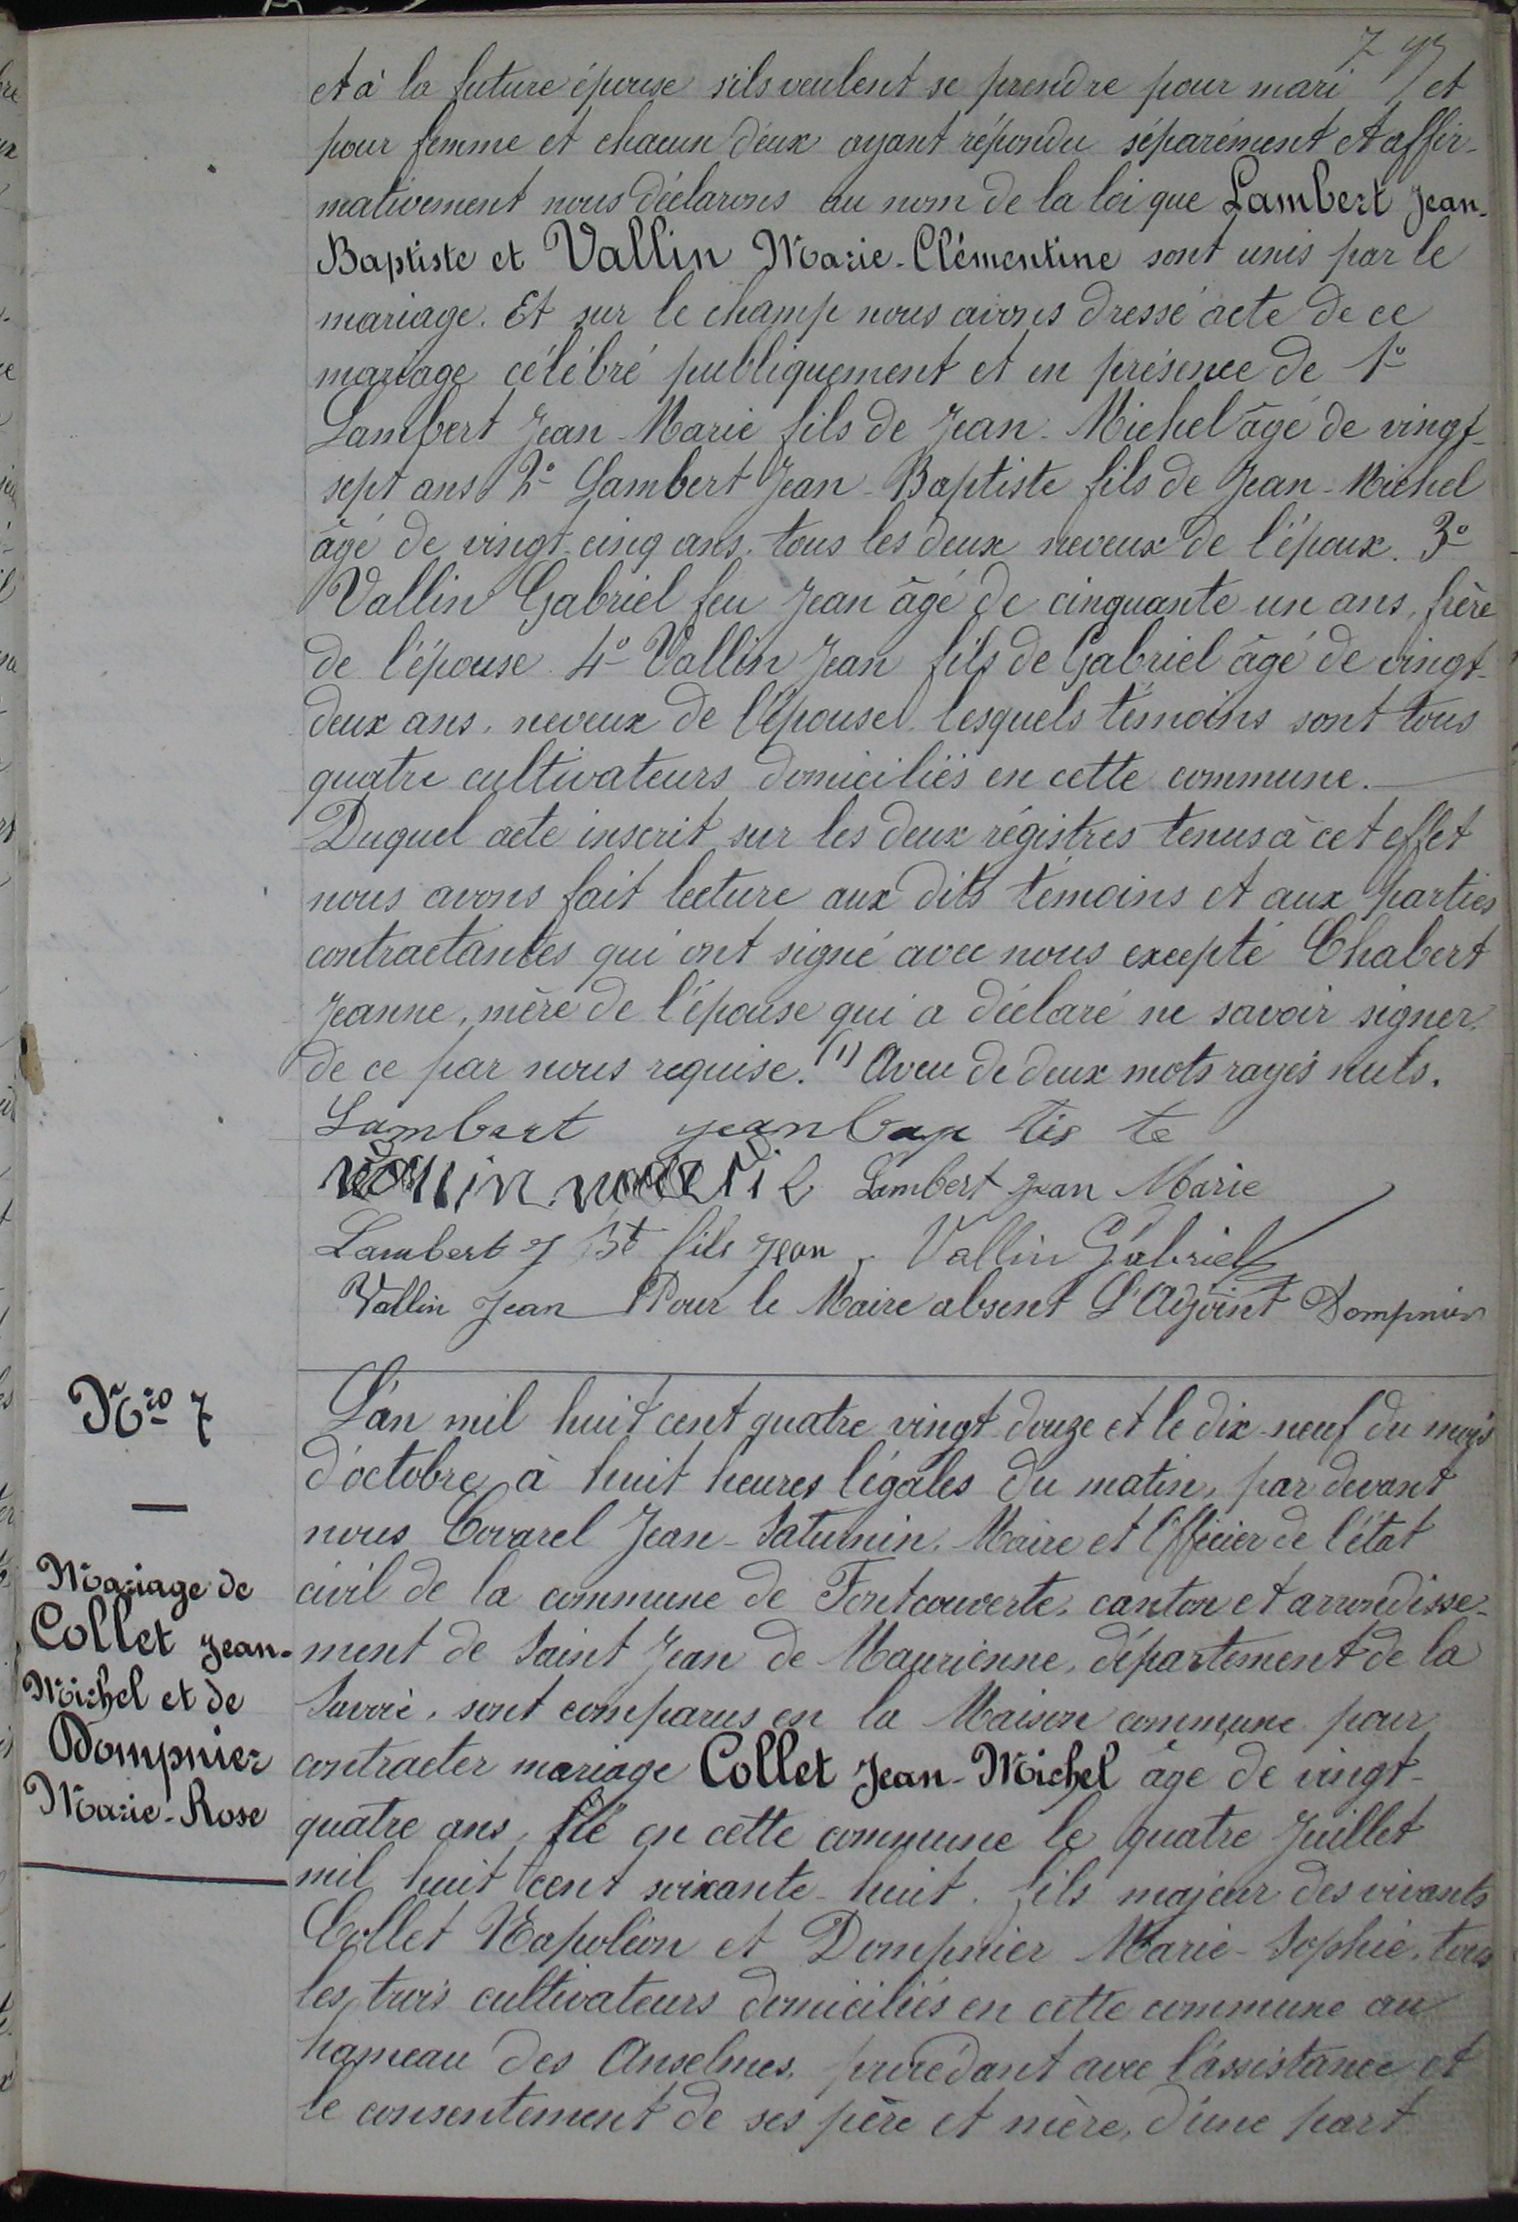 et à la future épouse s'ils veulent se prendre pour mari et
pour femme et chacun d'eux ayant répondu séparément et affir-
mativement nous déclarons au nom de la loi que Lambert Jean-
Baptiste et Vallin Marie-Clémentine sont unis par le
mariage. Et sur le champ nous avons dressé acte de ce
mariage célébré publiquement et en présence de 1º
Lambert Jean-Marie fils de Jean-Michel âgé de vingt-
sept ans 2º Lambert Jean-Baptiste fils de Jean-Michel
âgé de vingt-cinq ans, tous les deux neveux de l'époux. 3º
Vallin Gabriel feu Jean âgé de cinquante-un ans, frère
de l'épouse 4º Vallin Jean fils de Gabriel âgé de vingt-
deux ans, neveux de l'épouse lesquels témoins sont tous
quatre cultivateurs domiciliés en cette commune.
Duquel acte inscrit sur les deux régistres tenus à cet effet
nous avons fait lecture aux dits témoins et aux parties
contractantes qui ont signé avec nous excepté Chabert
Jeanne, mère de l'épouse qui a déclaré ne savoir signer
de ce par nous requise. (1) Aveu de deux mots rayés nuls.
Lambert jean bap tis te
Lambert Jean Marie
Lambert J Bt fils Jean, Vallin Gabriel
Vallin Jean Pour le Maire absent L'Adjoint Dompnier
Nro 7
Mariage de
Collet Jean-
Michel et de
Dompnier
Marie-Rose
L'an mil huit cent quatre vingt douze et le dix-neuf du mois
d'octobre à huit heures légales du matin, par devant
nous Covarel Jean-Saturnin, Maire et Officier de l'état
civil de la commune de Fontcouverte, canton et arrondisse-
ment de Saint Jean de Maurienne, département de la
Savoie, sont comparus en la Maison commune pour
contracter mariage Collet Jean-Michel âgé de vingt-
quatre ans, né en cette commune le quatre Juillet
mil huit cent soixante-huit, fils majeur des vivants
Collet Napoléon et Dompnier Marie-Sophie, tous
les trois cultivateurs domiciliés en cette commune au
hameau des Anselmes, procédant avec l'assistance et
le consentement de ses père et mère, d'une part